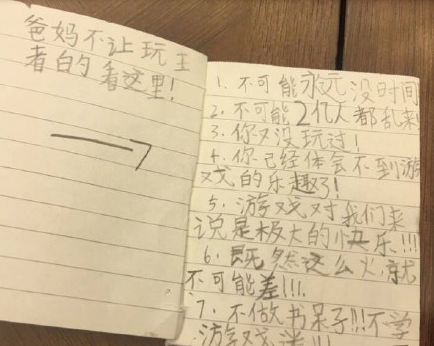 爸妈不让玩王
者的看这里!
1. 不可能永元没时间
2. 不可能2亿人都乱来!
3. 你又没玩过!
4. 你已经体会不到游
戏的乐趣了!
5. 游戏对我们来
说是极大的快乐!!!
6. 既然这么火,就
不可能差!!!
7. 不做书呆子!!!不学
游戏迷!!!